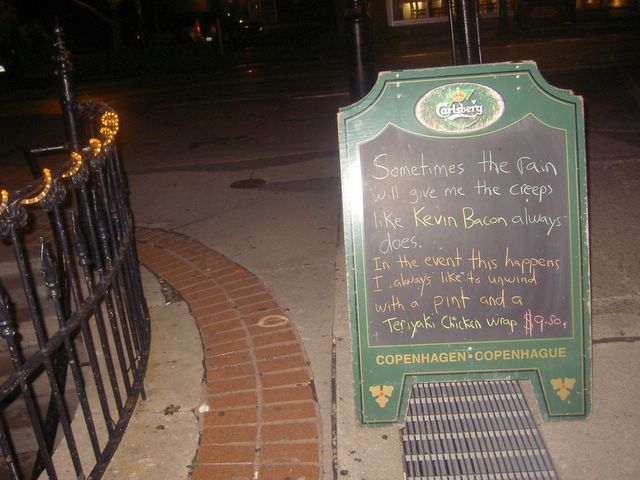 Carlsberg
Sometimes the rain
will give me the creeps
like Kevin Bacon always
does.
In the event this happens
I always like to unwind
with a pint and a
Teriyaki Chicken wrap $9.50.
COPENHAGEN • COPENHAGUE